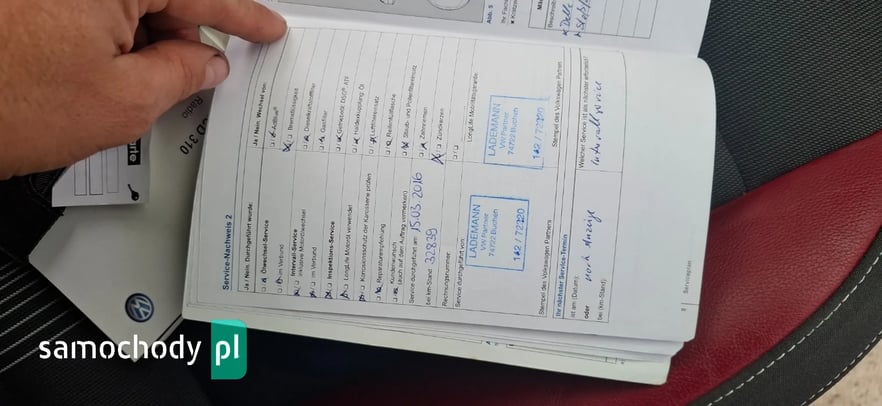 Service-Nachweis 2
Ja / Nein. Durchgeführt wurde:
Ölwechsel-Service
im Verbund
Intervall-Service
inklusive Motorölwechsel
im Verbund
Inspektions-Service
LongLife Motoröl verwendet
Korrosionsschutz der Karosserie prüfen
Reparaturempfehlung
Kundenwunsch
(auch auf dem Auftrag vermerken)
Service durchgeführt am: 15.03.2016
bei km-Stand: 32839
Rechnungsnummer:
Service durchgeführt von:
LADEMANN
VW Partner
74722 Buchen
182 / 72320
Stempel des Volkswagen Partners
Ja / Nein. Wechsel von:
AdBlue®
Bremsflüssigkeit
Dieselkraftstofffilter
Gasfilter
Getriebeöl, DSG®, ATF
Haldexkupplung Öl
Luftfiltereinsatz
Reifenfüllflasche
Staub- und Pollenfiltereinsatz
Zahnriemen
Zündkerzen
LongLife Mobilitätsgarantie:
LADEMANN
VW Partner
74722 Buchen
182 / 72320
Stempel des Volkswagen Partners
Ihr nächster Service-Termin
ist am (Datum):
oder nach Anzeige
bei (km-Stand):
Welcher Service ist als nächster erforderl.?
Intervallservice
8
Serviceplan
Abb. 5
CD 310
Radio
samochody pl